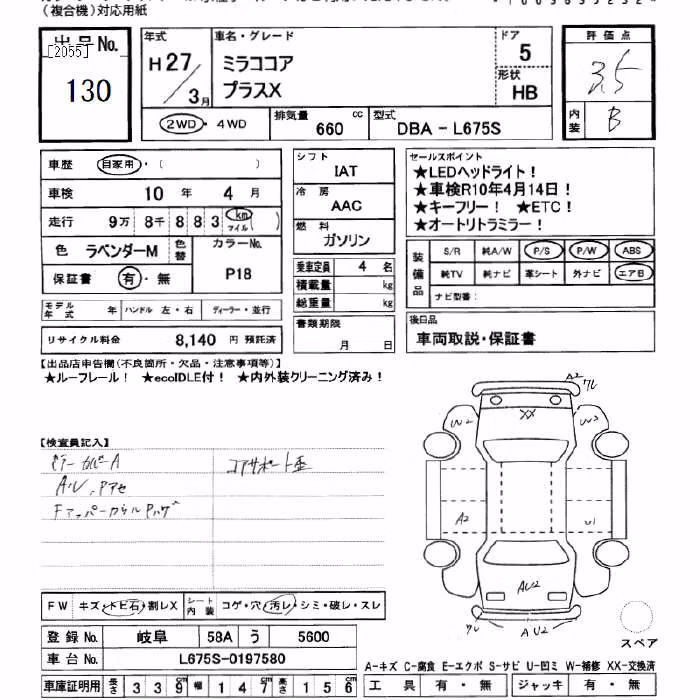 (複合機)対応用紙
出品No.
[2055]
130
年式
H27/3月
車名・グレード
ミラココア
プラスX
ドア
5
形状
HB
評価点
3.5
内装
B
2WD・4WD
排気量 660 cc
型式 DBA - L675S
車歴 自家用・( )
車検 10 年 4 月
走行 9万 8千 8 8 3 km マイル
色 ラベンダーM 色替
カラーNo. P18
保証書 有・無
モデル年式 年 ハンドル 左・右 ディーラー・並行
リサイクル料金 8,140 円 預託済
シフト
IAT
冷房
AAC
燃料
ガソリン
乗車定員 4 名
積載量 kg
総重量 kg
書類期限
月 日
セールスポイント
★LEDヘッドライト!
★車検R10年4月14日!
★キーフリー! ★ETC!
★オートリトラミラー!
装備品
S/R 純A/W P/S P/W ABS
純TV 純ナビ 革シート 外ナビ エアB
ナビ型番:
後日品
車両取説・保証書
【出品店申告欄(不良箇所・欠品・注意事項等)】
★ルーフレール! ★ecoIDLE付! ★内外装クリーニング済み!
【検査員記入】
コアサポート歪
FW キズ・トビ石・割レX
シート内装 コゲ・穴・汚レ・シミ・破レ・スレ
登録 No. 岐阜 58A う 5600
車台 No. L675S-0197580
車庫証明用 長さ 3 3 9 cm 幅 1 4 7 cm 高さ 1 5 6 cm
A2
ワレ
XX
W2
W2
A2
U1
AU2
ワレ
AU2
スペア
A-キズ C-腐食 E-エクボ S-サビ U-凹ミ W-補修 XX-交換済
工具 有・無 ジャッキ 有・無